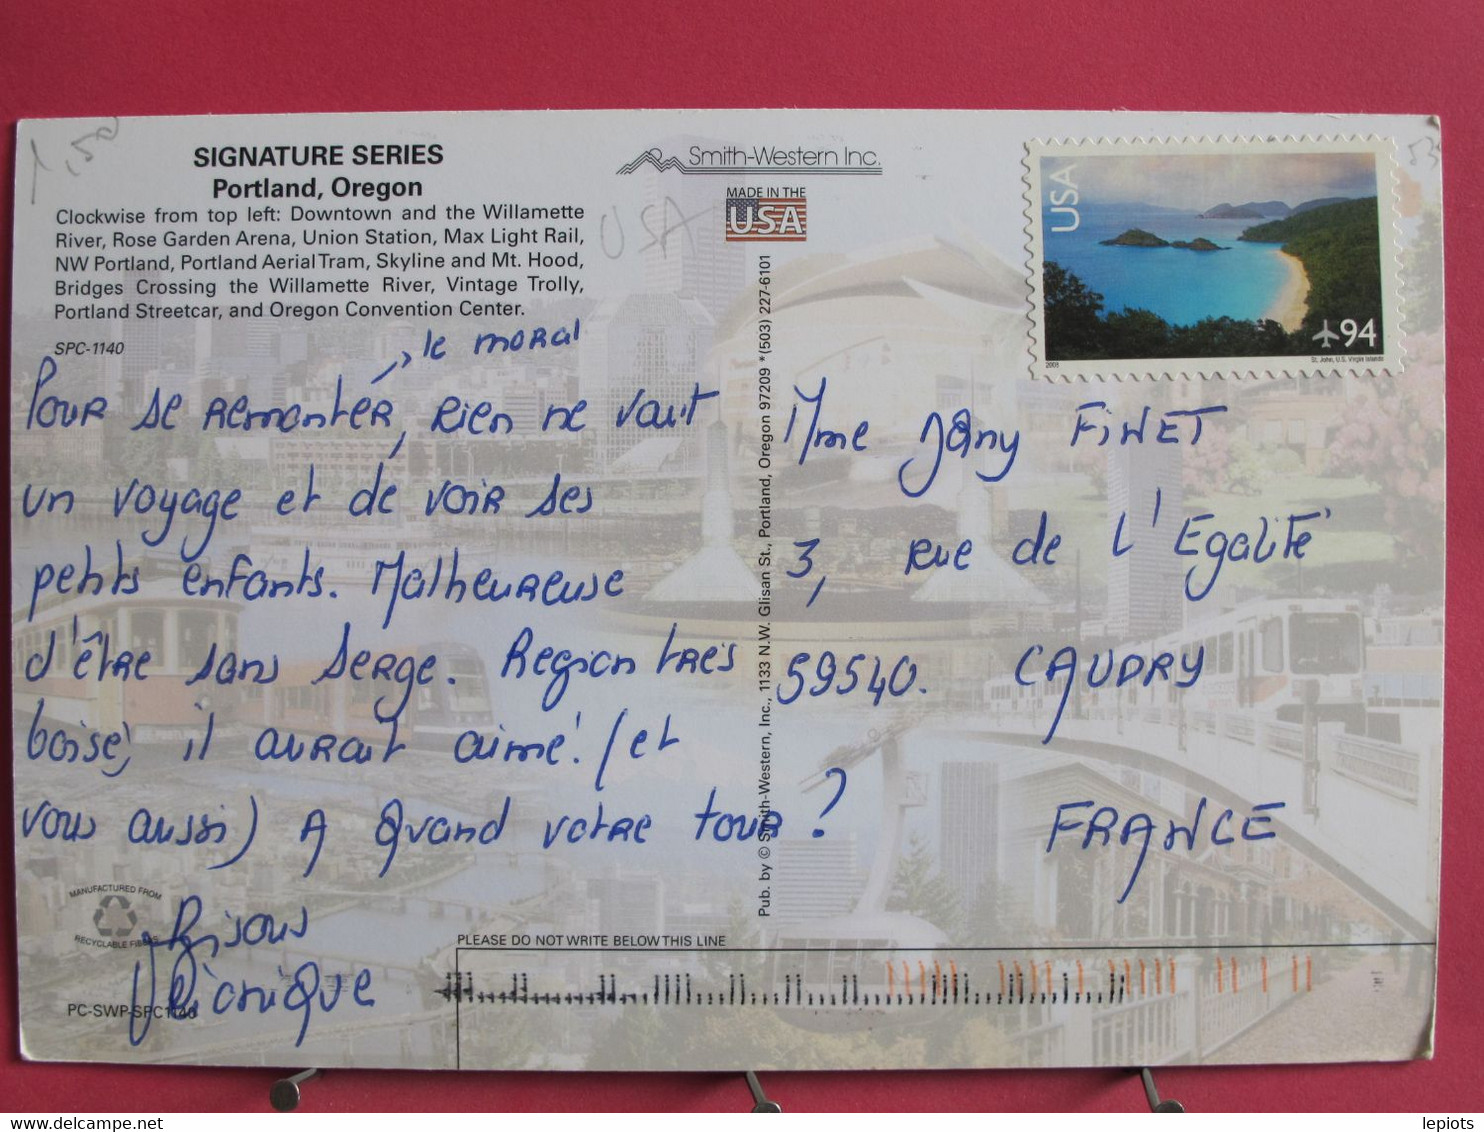 1,50
SIGNATURE SERIES
Portland, Oregon
Clockwise from top left: Downtown and the Willamette
River, Rose Garden Arena, Union Station, Max Light Rail,
NW Portland, Portland Aerial Tram, Skyline and Mt. Hood,
Bridges Crossing the Willamette River, Vintage Trolly,
Portland Streetcar, and Oregon Convention Center.
SPC-1140
Smith-Western Inc.
MADE IN THE
USA
USA
USA
94
2008
St. John, U.S. Virgin Islands
53
le moral
Pour se remonter, rien ne vaut
un voyage et de voir ses
petits enfants. Malheureuse
d'être sans Serge. Region très
boisé, il aurait aimé! (et
vous aussi) A quand votre tour?
Bisous
Véronique
Pub. by © Smith-Western, Inc., 1133 N.W. Glisan St., Portland, Oregon 97209 *(503) 227-6101
Mme Jany FINET
3, rue de l'Egalité
59540. CAUDRY
FRANCE
MANUFACTURED FROM
RECYCLABLE FIBERS
PC-SWP-SPC1140
PLEASE DO NOT WRITE BELOW THIS LINE
lepiots